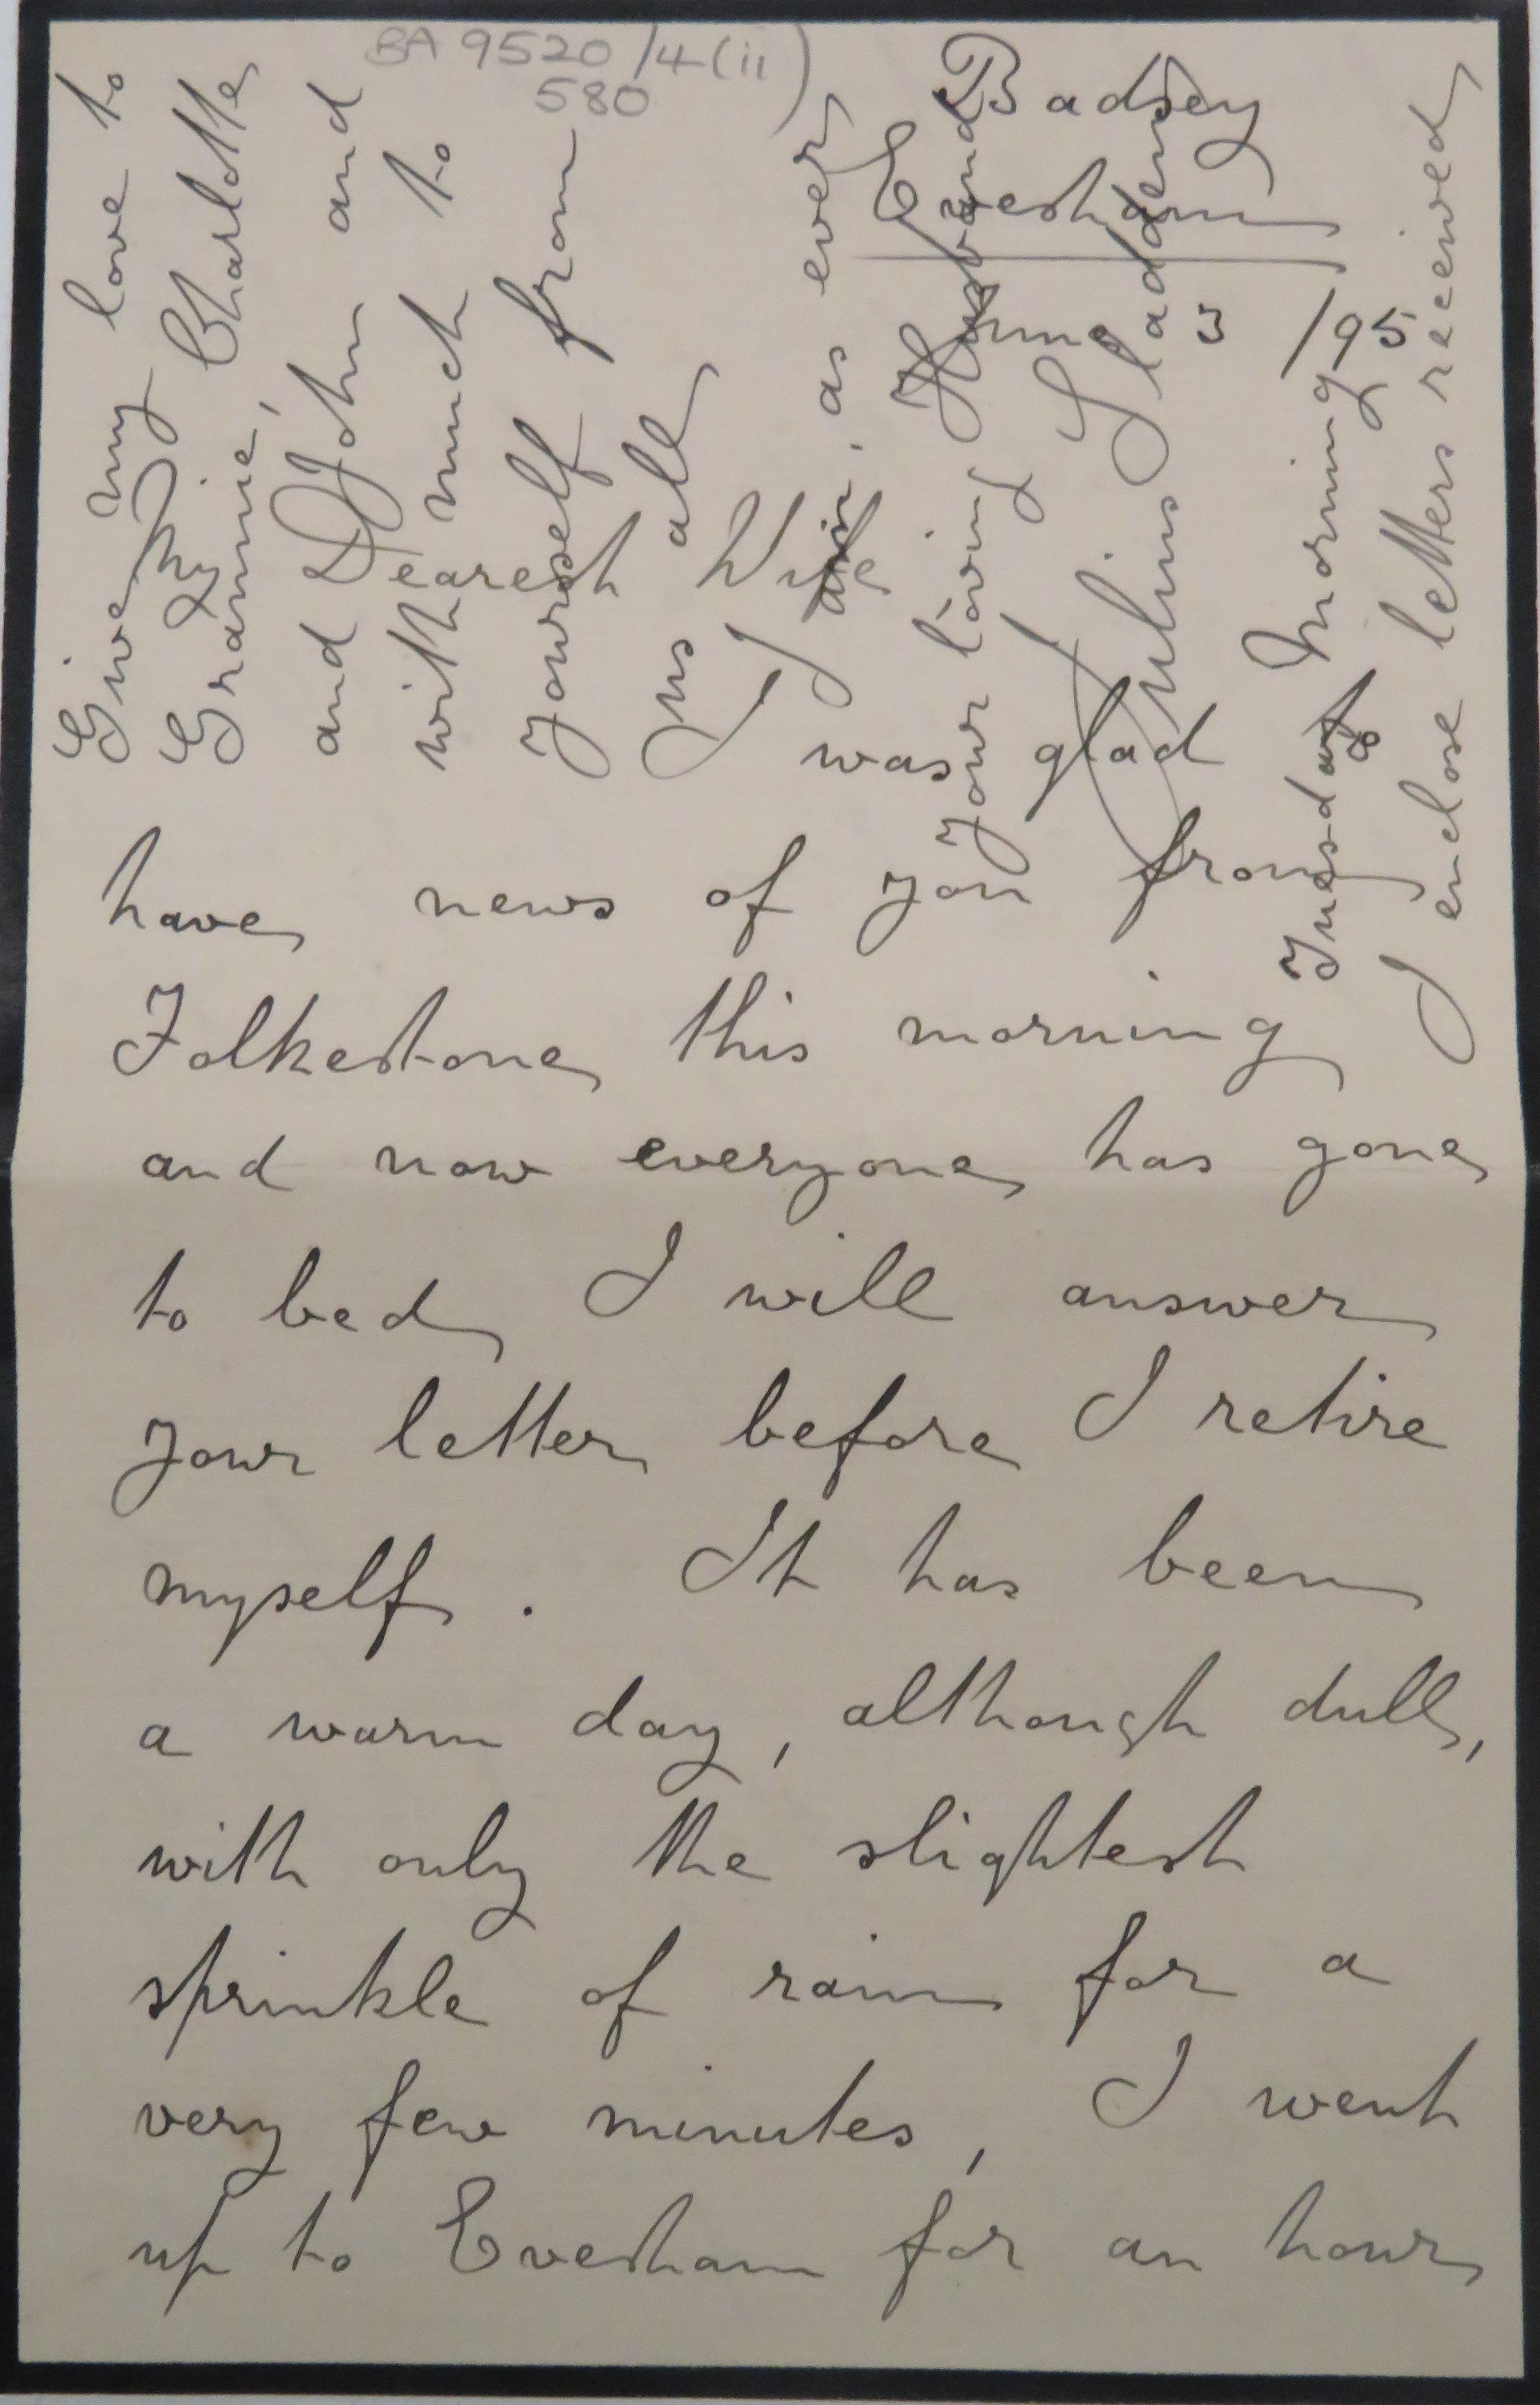 BA 9520/4(ii)
580
Badsey
Evesham
June 3 /95
Dearest Wife
I was glad to
have news of you from
Folkestone this morning
and now everyone has gone
to bed I will answer
your letter before I retire
myself. It has been
a warm day, although dull,
with only the slightest
sprinkle of rain for a
very few minutes, I went
up to Evesham for an hour
Give my love to
Grannie, Charlotte
and John and
with much to
yourself from
us all
I am, as ever
Your loving Husband
Julius Sladden
Tuesday Morning
I enclose letters received